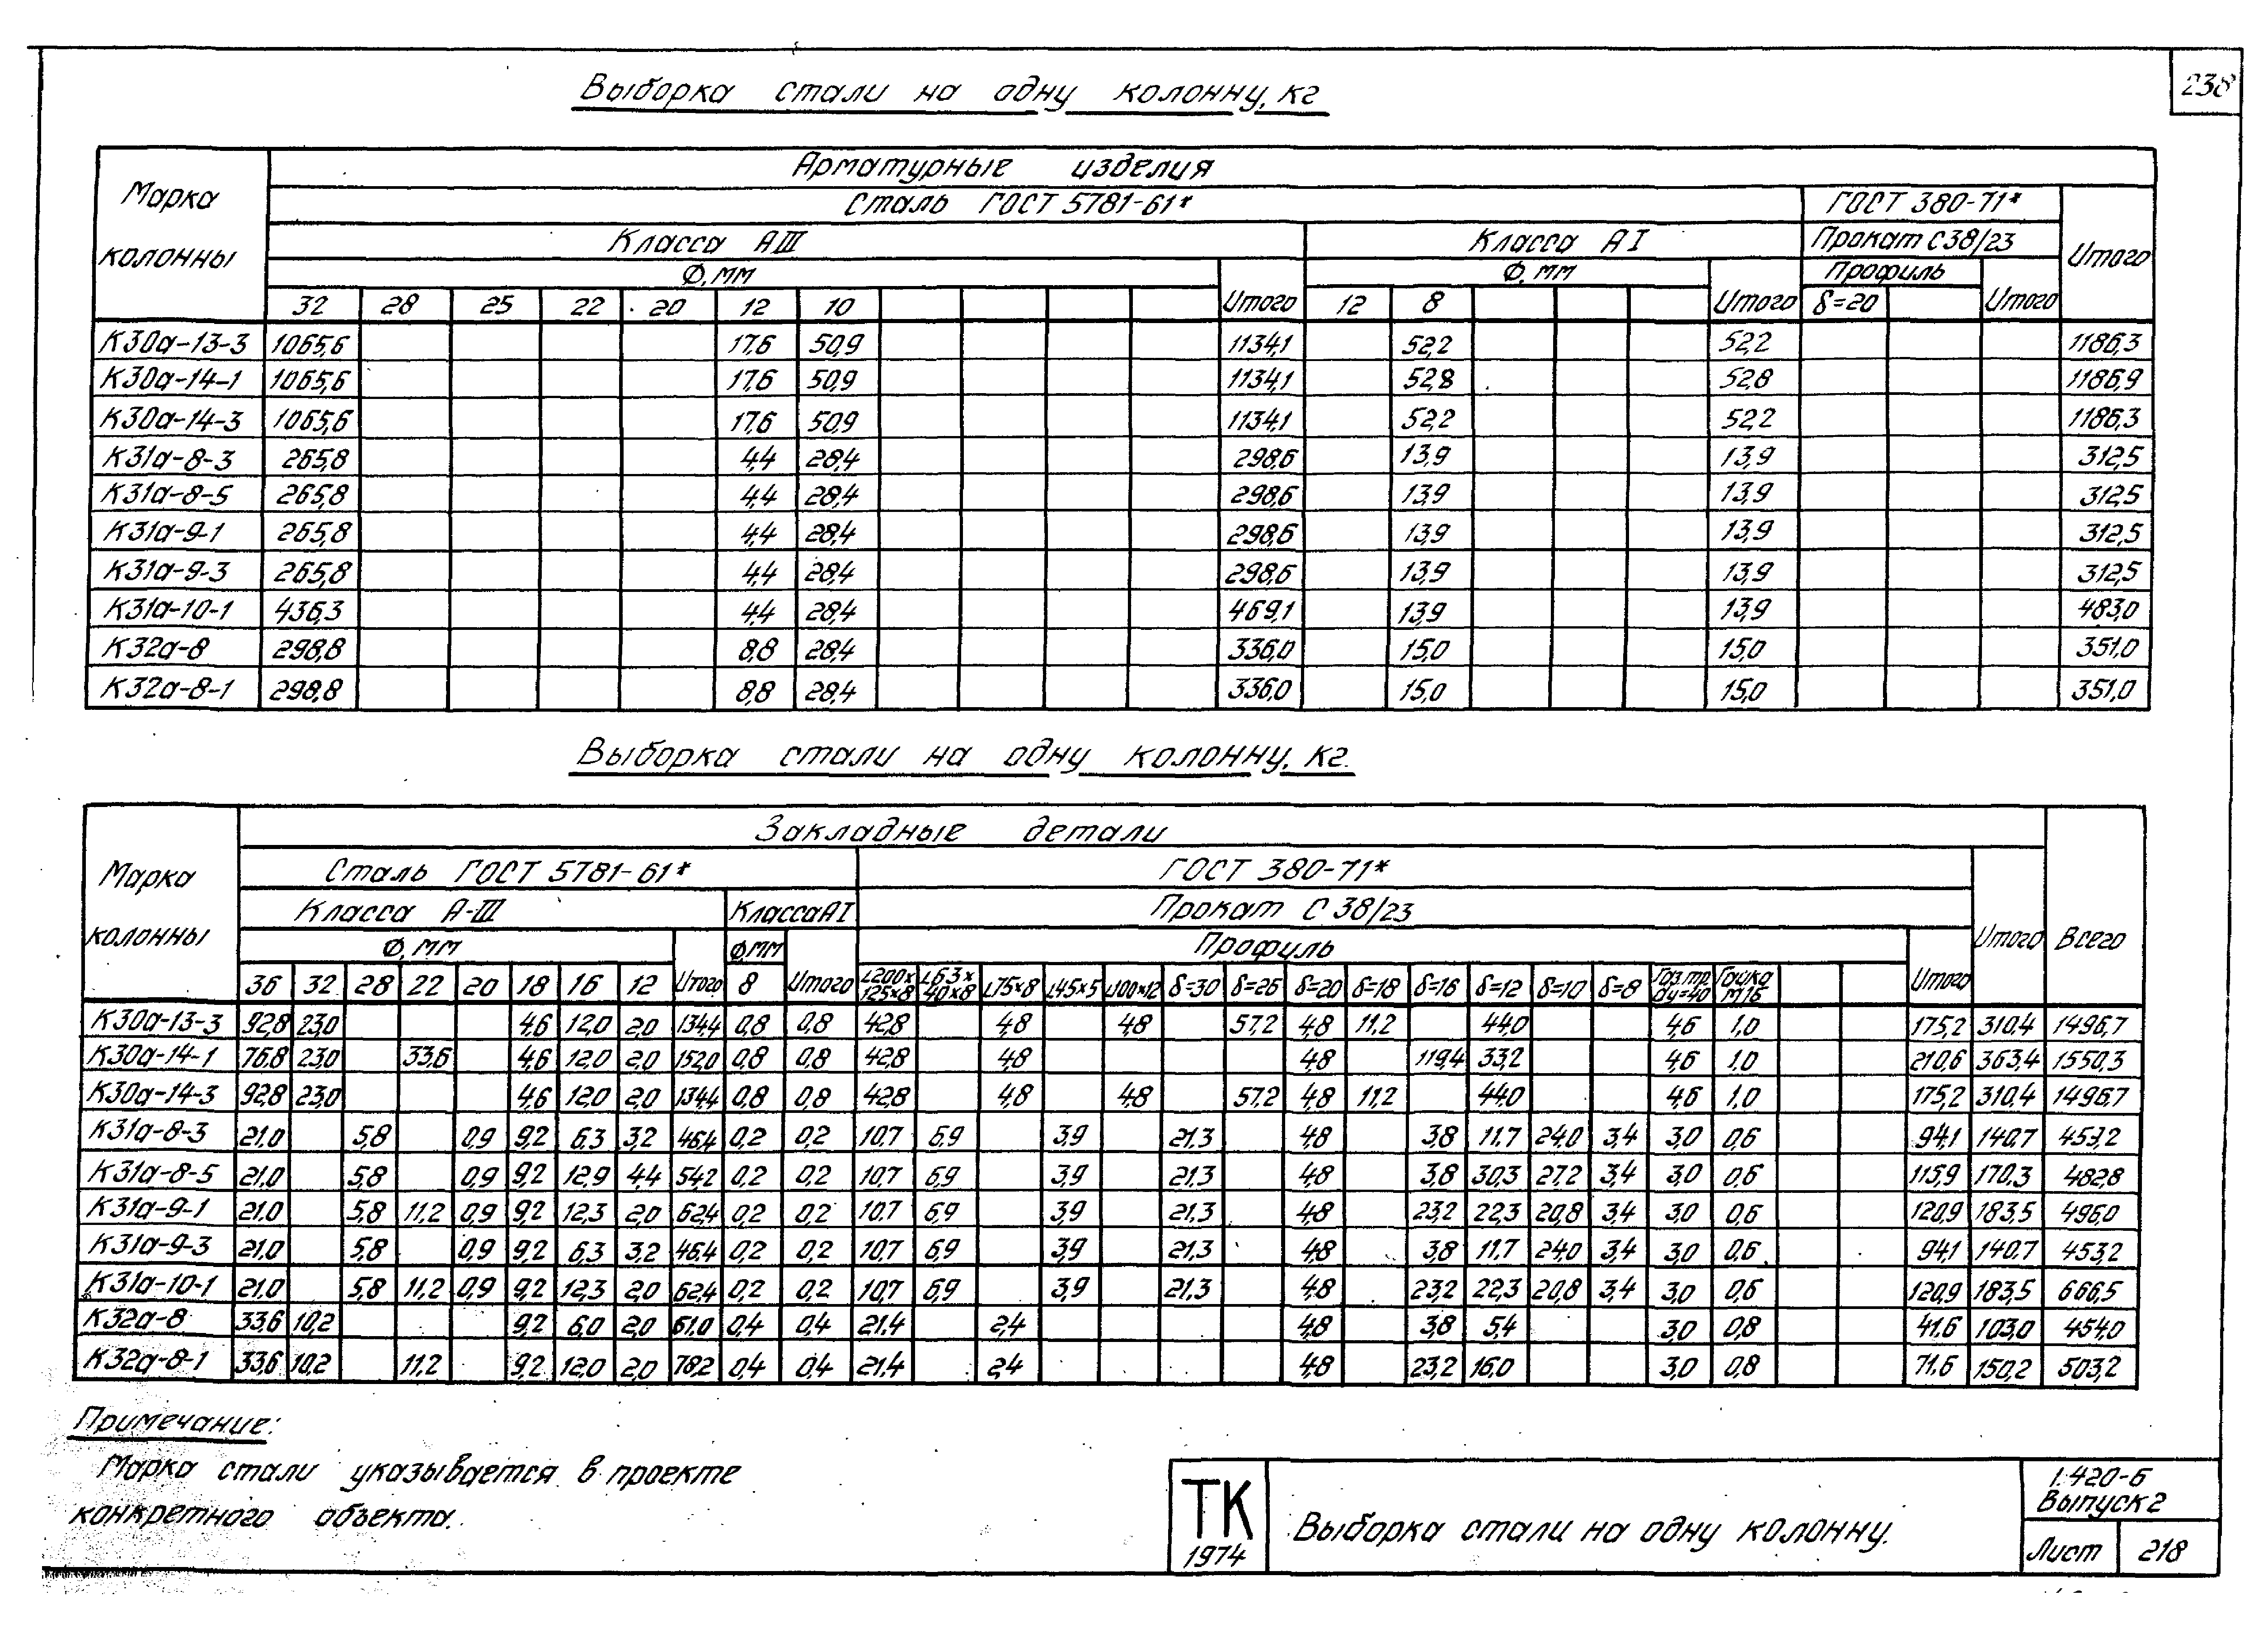 238
Выборка стали на одну колонну, кг
Марка колонны
Арматурные изделия
Сталь ГОСТ 5781-61* ГОСТ 380-71* Итого
Класса АIII Класса АI Прокат С38/23
Ф, мм Ф, мм Профиль
32 28 25 22 20 12 10 Итого 12 8 Итого δ=20 Итого
К30а-13-3 1065,6 17,6 50,9 1134,1 52,2 52,2 1186,3
К30а-14-1 1065,6 17,6 50,9 1134,1 52,8 52,8 1186,9
К30а-14-3 1065,6 17,6 50,9 1134,1 52,2 52,2 1186,3
К31а-8-3 265,8 4,4 28,4 298,6 13,9 13,9 312,5
К31а-8-5 265,8 4,4 28,4 298,6 13,9 13,9 312,5
К31а-9-1 265,8 4,4 28,4 298,6 13,9 13,9 312,5
К31а-9-3 265,8 4,4 28,4 298,6 13,9 13,9 312,5
К31а-10-1 436,3 4,4 28,4 469,1 13,9 13,9 483,0
К32а-8 298,8 8,8 28,4 336,0 15,0 15,0 351,0
К32а-8-1 298,8 8,8 28,4 336,0 15,0 15,0 351,0
Выборка стали на одну колонну, кг.
Марка колонны
Закладные детали Всего
Сталь ГОСТ 5781-61* ГОСТ 380-71* Итого
Класса А-III Класса АI Прокат С 38/23
Ф, мм Ф, мм Профиль
36 32 28 22 20 18 16 12 Итого 8 Итого L200×125×8 L63×40×8 L75×8 L45×5 L100×12 δ=30 δ=26 δ=20 δ=18 δ=16 δ=12 δ=10 δ=8 Газ.тр. dу=40 Гайка М16 Итого
К30а-13-3 92,8 23,0 4,6 12,0 2,0 134,4 0,8 0,8 42,8 4,8 4,8 57,2 4,8 11,2 44,0 4,6 1,0 175,2 310,4 1496,7
К30а-14-1 76,8 23,0 33,6 4,6 12,0 2,0 152,0 0,8 0,8 42,8 4,8 4,8 119,4 33,2 4,6 1,0 210,6 363,4 1550,3
К30а-14-3 92,8 23,0 4,6 12,0 2,0 134,4 0,8 0,8 42,8 4,8 4,8 57,2 4,8 11,2 44,0 4,6 1,0 175,2 310,4 1496,7
К31а-8-3 21,0 5,8 0,9 9,2 6,3 3,2 46,4 0,2 0,2 10,7 6,9 3,9 21,3 4,8 3,8 11,7 24,0 3,4 3,0 0,6 94,1 140,7 453,2
К31а-8-5 21,0 5,8 0,9 9,2 12,9 4,4 54,2 0,2 0,2 10,7 6,9 3,9 21,3 4,8 3,8 30,3 27,2 3,4 3,0 0,6 115,9 170,3 482,8
К31а-9-1 21,0 5,8 11,2 0,9 9,2 12,3 2,0 62,4 0,2 0,2 10,7 6,9 3,9 21,3 4,8 23,2 22,3 20,8 3,4 3,0 0,6 120,9 183,5 496,0
К31а-9-3 21,0 5,8 0,9 9,2 6,3 3,2 46,4 0,2 0,2 10,7 6,9 3,9 21,3 4,8 3,8 11,7 24,0 3,4 3,0 0,6 94,1 140,7 453,2
К31а-10-1 21,0 5,8 11,2 0,9 9,2 12,3 2,0 62,4 0,2 0,2 10,7 6,9 3,9 21,3 4,8 23,2 22,3 20,8 3,4 3,0 0,6 120,9 183,5 666,5
К32а-8 33,6 10,2 9,2 6,0 2,0 61,0 0,4 0,4 21,4 2,4 4,8 3,8 5,4 3,0 0,8 41,6 103,0 454,0
К32а-8-1 33,6 10,2 11,2 9,2 12,0 2,0 78,2 0,4 0,4 21,4 2,4 4,8 23,2 16,0 3,0 0,8 71,6 150,2 503,2
Примечание:
Марка стали указывается в проекте
конкретного объекта.
ТК
1974
Выборка стали на одну колонну.
1.420-6
Выпуск 2
Лист 218